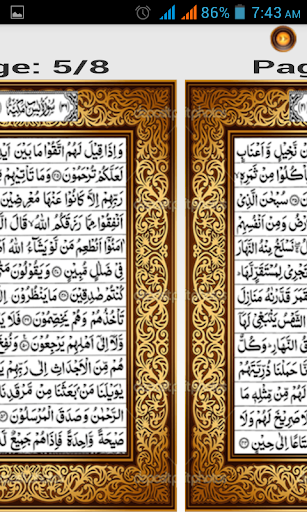 86% 7:43 AM
ge: 5/8
Pag
سُوْرَةُ يٰسٓ مَكِّيَّةٌ (٣٦)
وَاِذَا قِيْلَ لَهُمُ اتَّقُوْا مَا بَيْنَ
لَعَلَّكُمْ تُرْحَمُوْنَ وَمَا تَاْتِيْهِمْ
رَبِّهِمْ اِلَّا كَانُوْا عَنْهَا مُعْرِضِيْنَ
اَنْفِقُوْا مِمَّا رَزَقَكُمُ اللّٰهُ قَالَ
اٰمَنُوْٓا اَنُطْعِمُ مَنْ لَّوْ يَشَآءُ اللّٰهُ
فِيْ ضَلٰلٍ مُّبِيْنٍ وَيَقُوْلُوْنَ
كُنْتُمْ صٰدِقِيْنَ مَا يَنْظُرُوْنَ اِلَّا
تَاْخُذُهُمْ وَهُمْ يَخِصِّمُوْنَ فَلَا
اِلٰٓى اَهْلِهِمْ يَرْجِعُوْنَ
هُمْ مِّنَ الْاَجْدَاثِ اِلٰى رَبِّهِمْ
يٰوَيْلَنَا مَنْۢ بَعَثَنَا مِنْ مَّرْقَدِنَا
الرَّحْمٰنُ وَصَدَقَ الْمُرْسَلُوْنَ
صَيْحَةً وَّاحِدَةً فَاِذَا هُمْ جَمِيْعٌ
نَّخِيْلٍ وَّاَعْنَابٍ
مِنْ ثَمَرِهٖ
سُبْحٰنَ الَّذِيْ
نَسْلَخُ مِنْهُ النَّهَارَ
لِمُسْتَقَرٍّ لَّهَا
قَدَّرْنٰهُ مَنَازِلَ
يَنْۢبَغِيْ لَهَآ
النَّهَارِ وَكُلٌّ
حَمَلْنَا ذُرِّيَّتَهُمْ
لَهُمْ مِّنْ مِّثْلِهٖ مَا
صَرِيْخَ لَهُمْ وَلَا
اِلٰى حِيْنٍ